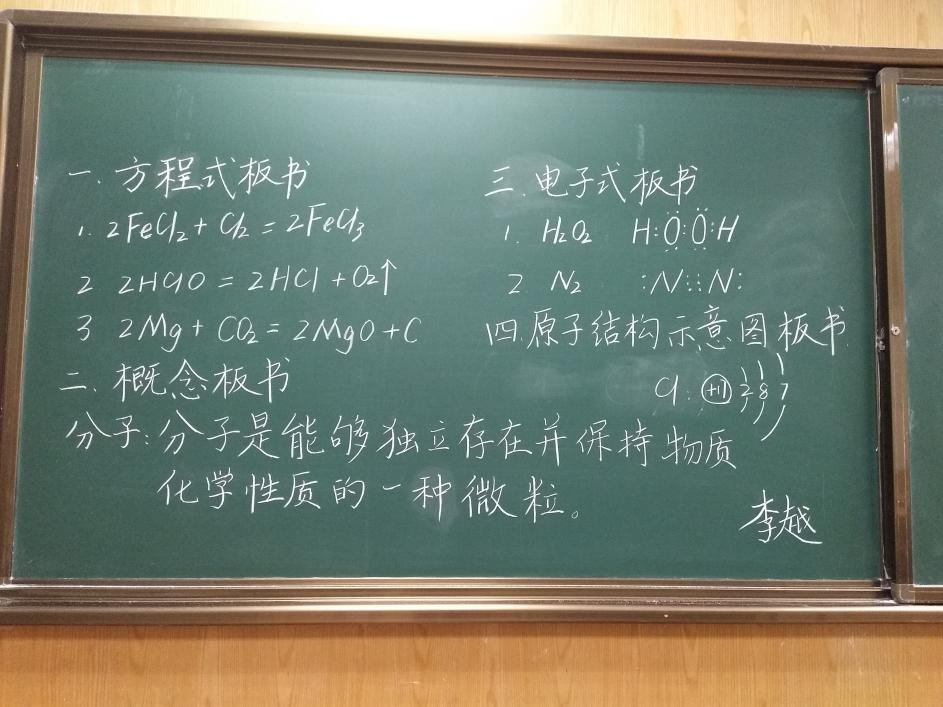 一.方程式板书
1. 2FeCl2 + Cl2 = 2FeCl3
2 2HClO = 2HCl + O2↑
3 2Mg + CO2 = 2MgO + C
二.概念板书
分子:分子是能够独立存在并保持物质
化学性质的一种微粒。
三.电子式板书
1. H2O2 H:Ö:Ö:H
2. N2 :N⋮⋮N:
四.原子结构示意图板书
Cl: +17 2 8 7
李越